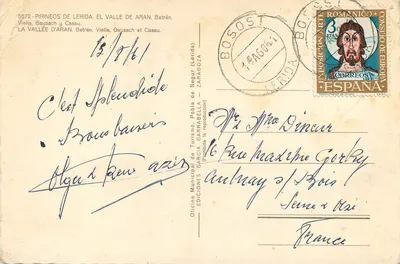 5072 - PIRINEOS DE LERIDA. EL VALLE DE ARAN. Betrén,
Viella, Gausach y Casau.
LA VALLÉE D'ARAN. Betrén, Viella, Gausach et Casau.
15/8/61
C'est Splendide
Bons baisers
Olga &
Oficina Municipal de Turismo. Pobla de Segur (Lérida)
EDICIONES GARCIA GARRABELLA - ZARAGOZA
BOSOST
LERIDA
ARTE ROMÁNICO
CONSEJO DE EUROPA
3
PTAS
CORREOS
ESPAÑA
Mr & Mme
16 Rue Maxime Gorky
Aulnay s/ Bois
Seine & Oise
France